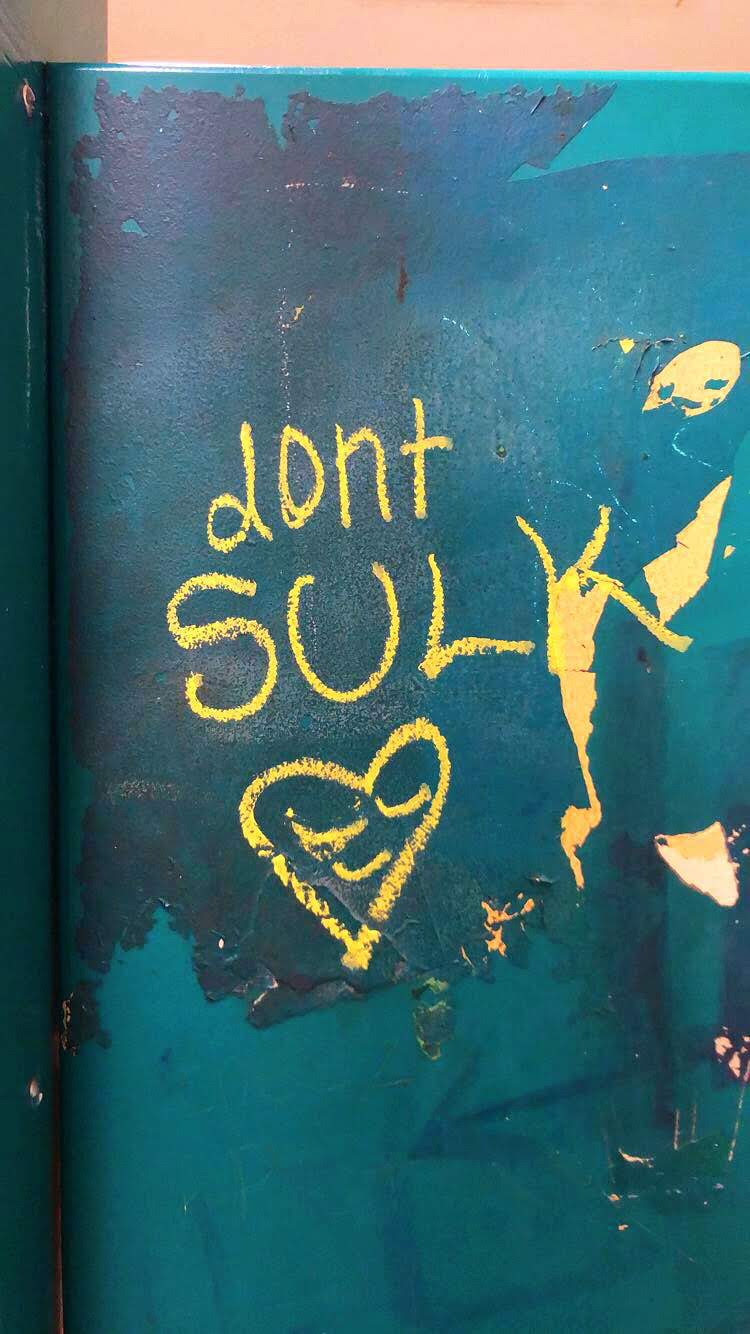 dont
SULK